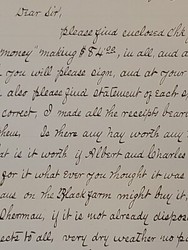 Dear Sir,
Please find enclosed Chk
money" making $84.00, in all, and a
you will please sign, and at your
also please find statement of each s
correct, I made all the receipts bear
them, Is there any hay worth any
at is it worth if Albert and Charles
for it what ever you thought it was
aus on the Black farm might buy it,
Sherman, if it is not already dispos
ects to all, very dry weather no p